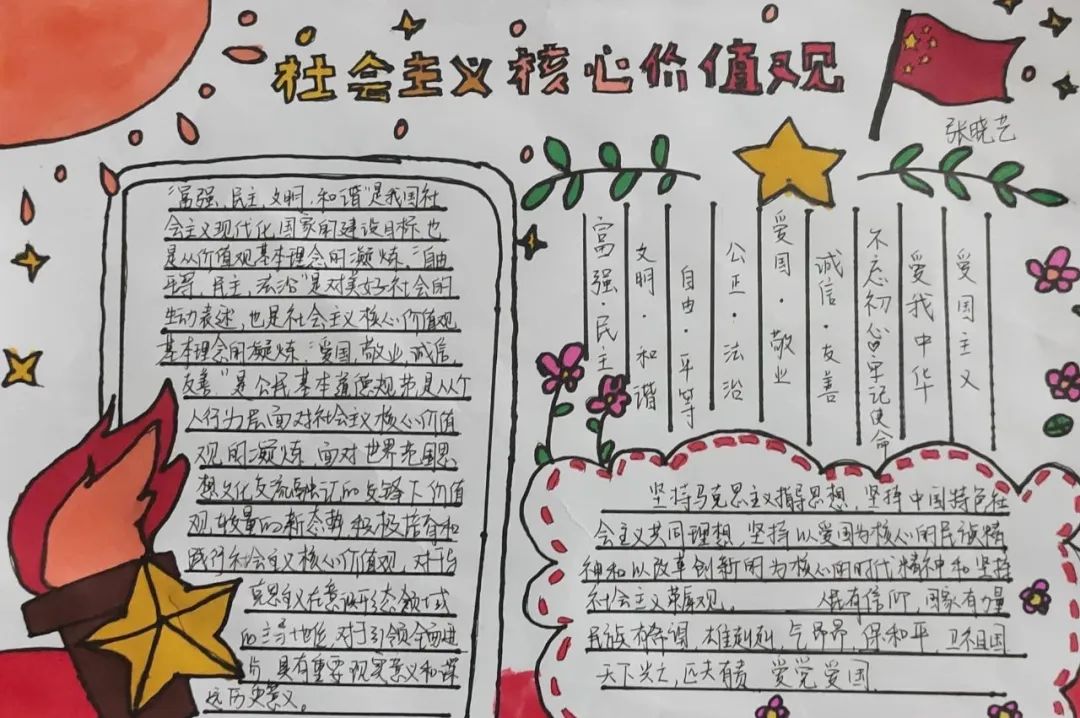 社会主义核心价值观
张晓艺
"富强、民主、文明、和谐"是我国社
会主义现代化国家的建设目标,也
是从价值观基本理念的凝炼。"自由
平等,民主,法治"是对美好社会的
生动表述,也是社会主义核心价值观
基本理念的凝炼."爱国,敬业,诚信,
友善"是公民基本道德规范是从个
人行为层面对社会主义核心价值
观的凝炼,面对世界范围思
想文化交流 的 下价值
观较量的新态势,积极培育和
践行社会主义核心价值观,对于
克思主义在意识形态领域
的主 地位,对于引领全面进
步,具有重要现实意义和深
远历史意义。
富强·民主
文明·和谐
自由·平等
公正·法治
爱国·敬业
诚信·友善
不忘初心牢记使命
爱我中华
爱国主义
坚持马克思主义指导思想,坚持中国特色社
会主义共同理想,坚持以爱国为核心的民族精
神和以改革创新的为核心的时代精神和坚持
社会主义荣辱观。 人民有信仰,国家有力量
民族有 ,雄赳赳,气昂昂,保和平,卫祖国
天下兴亡,匹夫有责 爱党爱国.